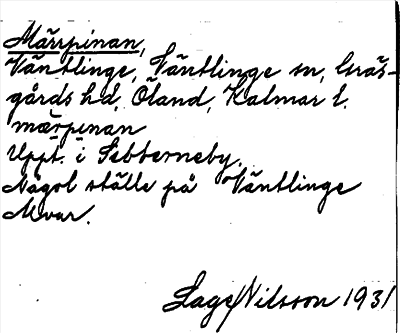 Märrpinan,
Väntlinge, Väntlinge sn, Gräs-
gårds hd, Öland, Kalmar l.
märpinan
Uppt. i Sebberneby.
Något ställe på Väntlinge
Alvar.
Lage Nilsson 1931